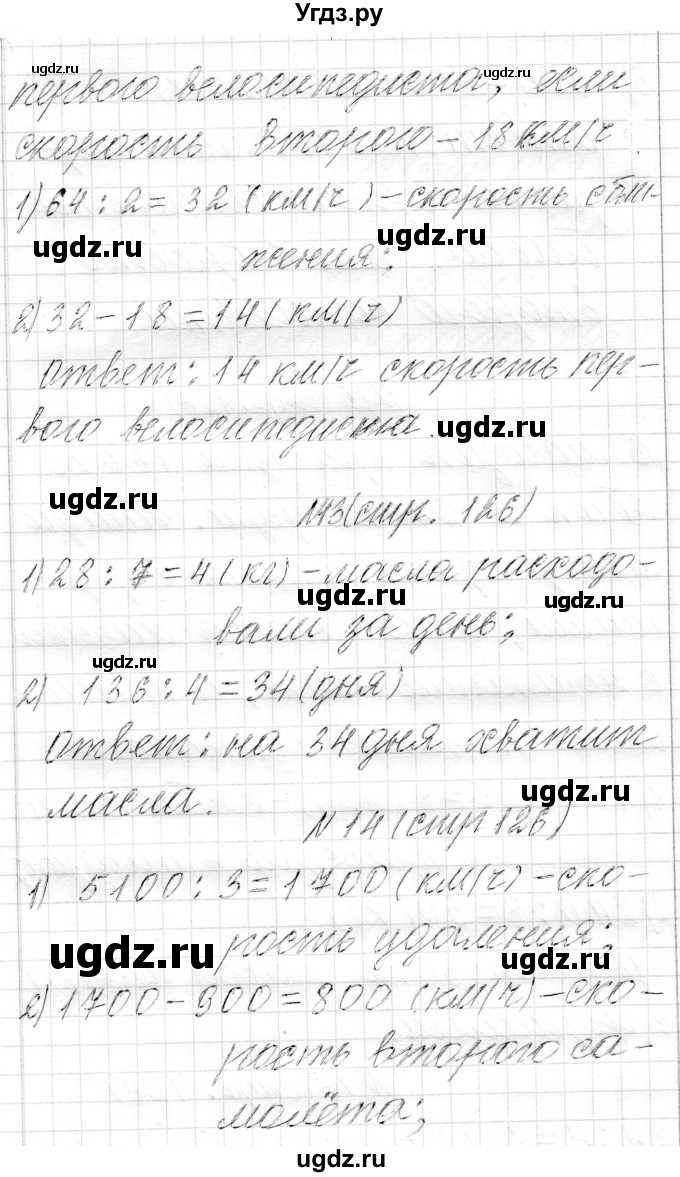 Угдз.ру
первого велосипедиста, если
скорость второго – 18 км/ч
1) 64 : 2 = 32 (км/ч) – скорость сбли-
жения;
2) 32 – 18 = 14 (км/ч)
ответ: 14 км/ч скорость пер-
вого велосипедиста.
№13 (стр. 126)
1) 28 : 7 = 4 (кг) – масла расходо-
вали за день;
2) 136 : 4 = 34 (дня)
ответ: на 34 дня хватит
масла.
№ 14 (стр 126)
1) 5100 : 3 = 1700 (км/ч) – ско-
рость удаления;
2) 1700 – 900 = 800 (км/ч) – ско-
рость второго са-
молёта;
ugdz.ru
ugdz.ru
ugdz.ru
ugdz.ru
ugdz.ru
ugdz.ru
ugdz.ru
ugdz.ru
ugdz.ru
ugdz.ru
ugdz.ru
ugdz.ru
ugdz.ru